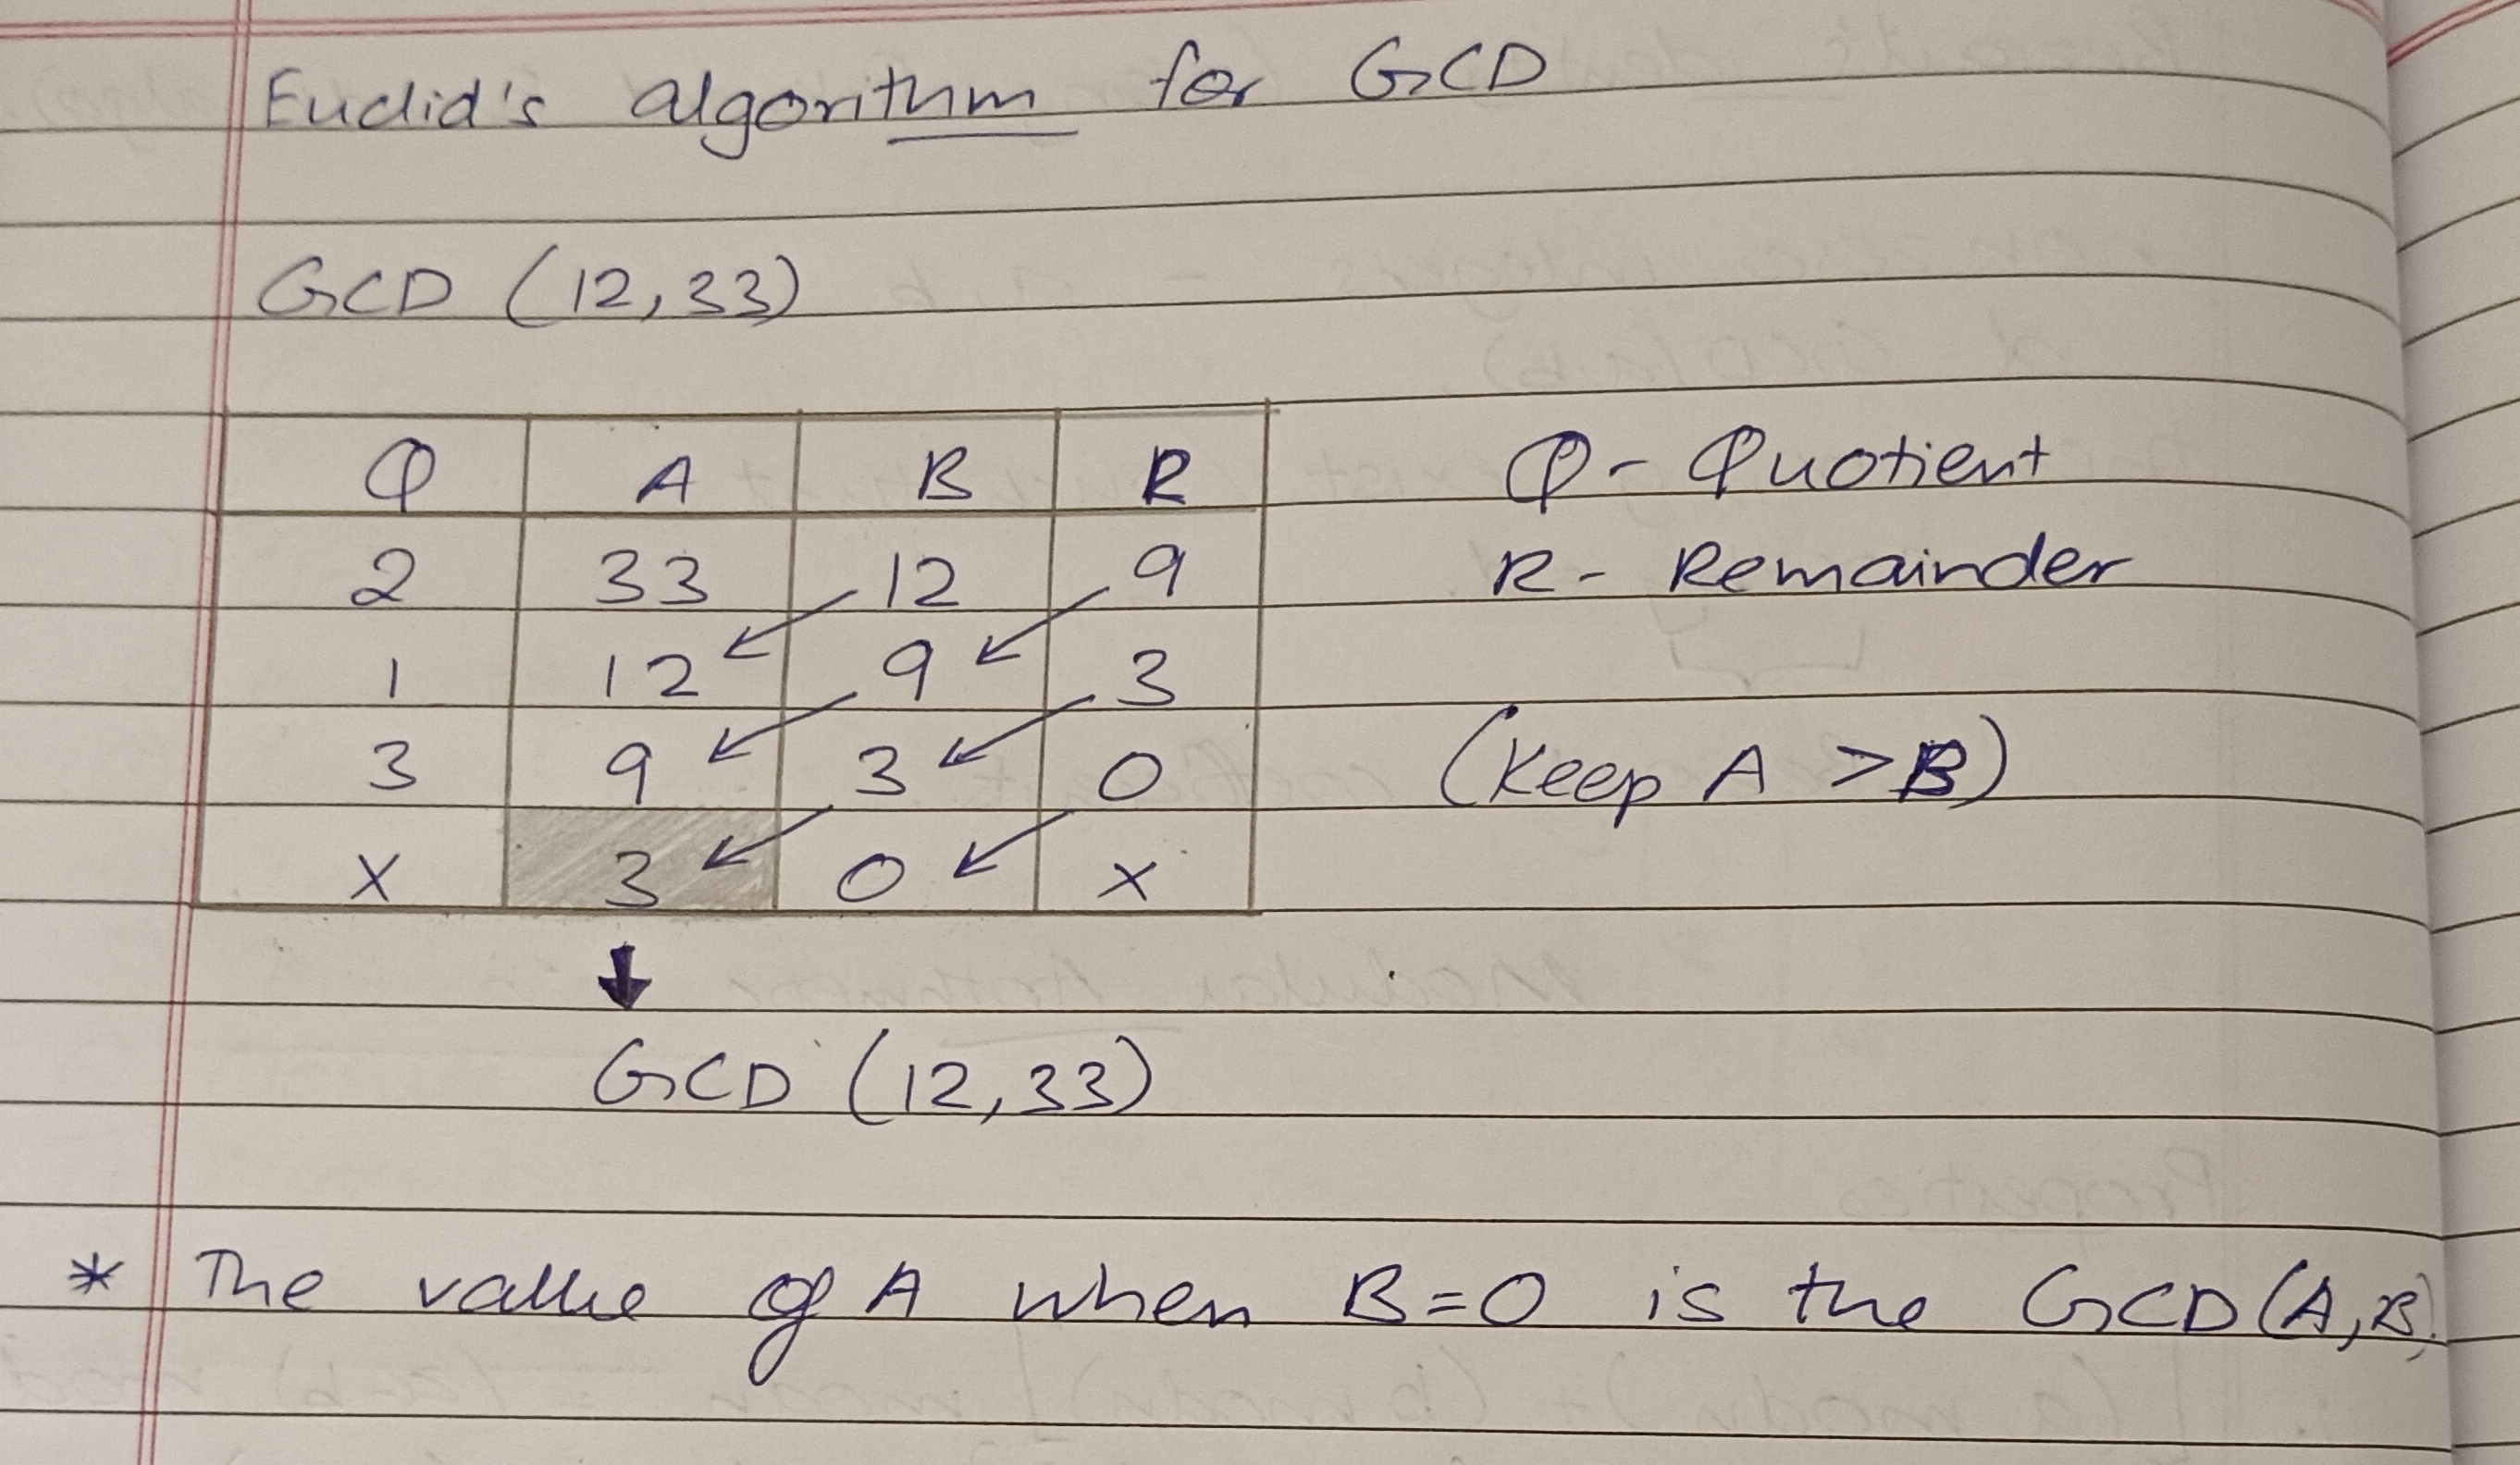 Euclid's algorithm for GCD
GCD (12,33)
Q A B R
2 33 12 9
1 12 9 3
3 9 3 0
X 3 0 X
Q - Quotient
R - Remainder
(Keep A > B)
GCD (12,33)
* The value of A when B=0 is the GCD(A,B)